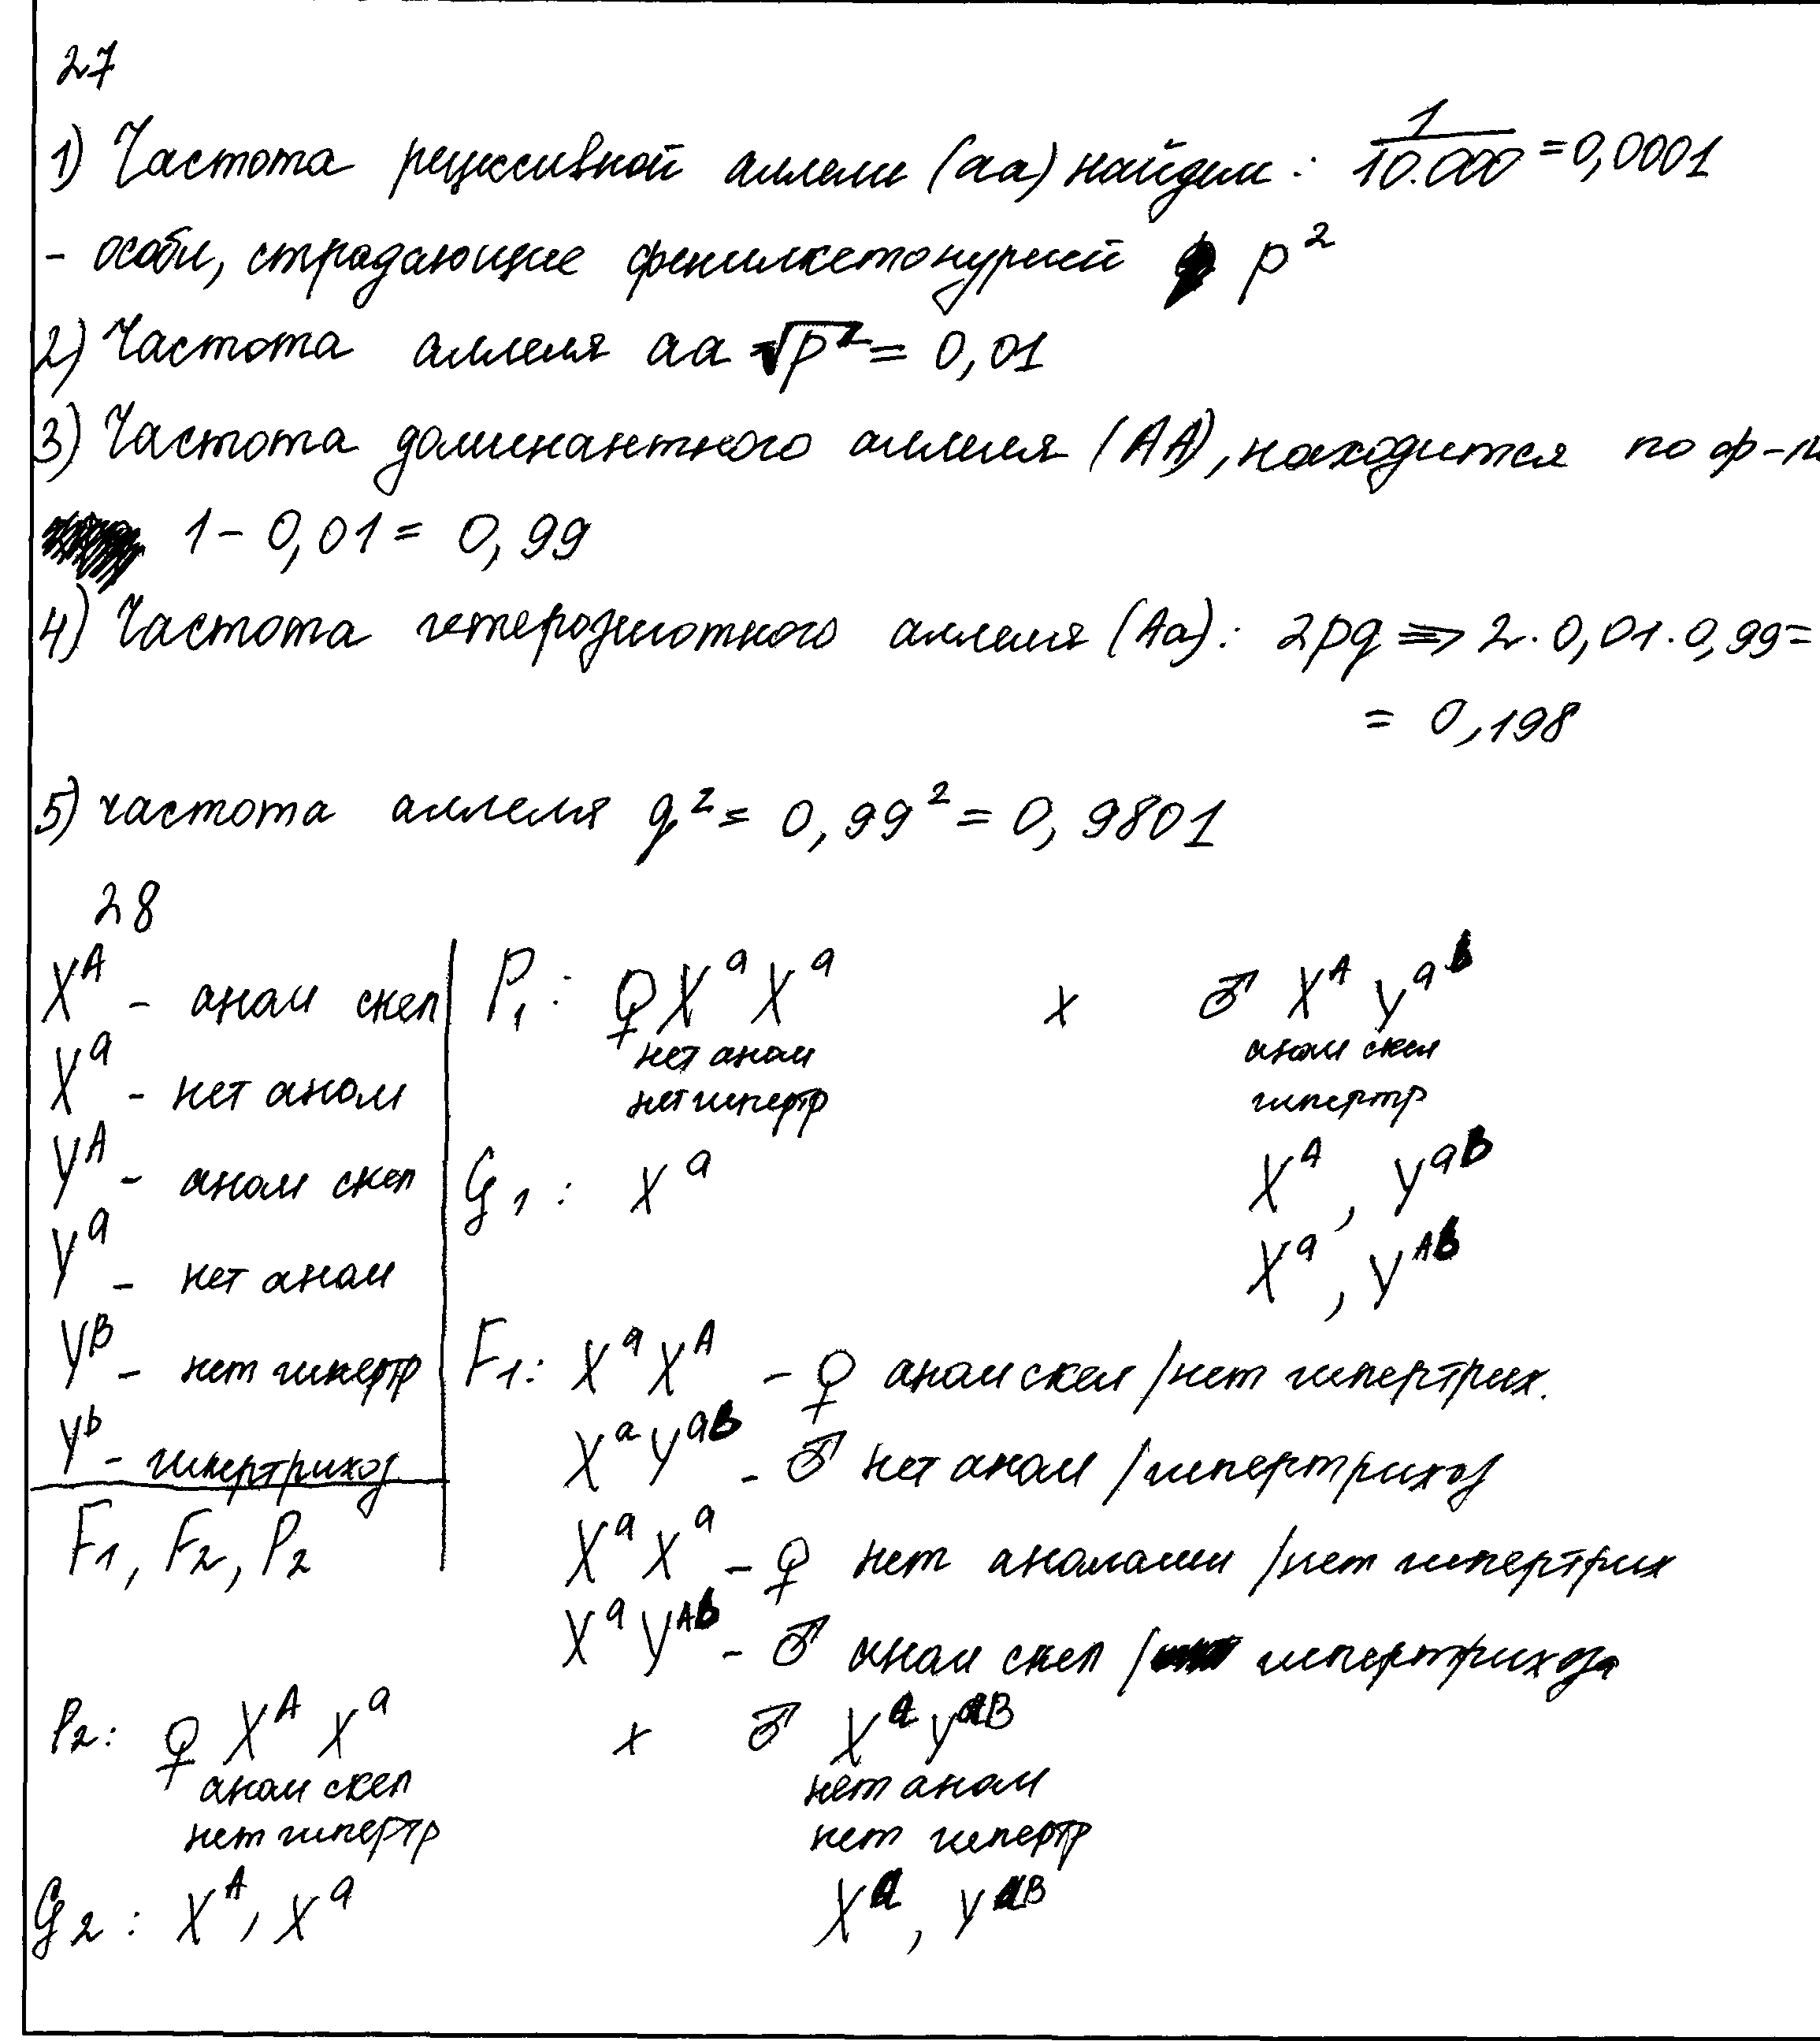 27
1) Частота рецессивной аллели (aa) найдем: 1/10.000 = 0,0001
- особи, страдающие фенилкетонурией p²
2) Частота аллеля aa √p² = 0,01
3) Частота доминантного аллеля (AA), находится по ф-л
1 - 0,01 = 0,99
4) Частота гетерозиготного аллеля (Aa): 2pq => 2·0,01·0,99=
= 0,198
5) частота аллеля q² = 0,99² = 0,9801
28
Xᴬ - аном скел
Xᵃ - нет аном
Yᴬ - аном скел
Yᵃ - нет аном
Yᴮ - нет гипертр
Yᵇ - гипертрихоз
F₁, F₂, P₂
P₁: ♀ XᵃXᵃ x ♂ XᴬYᵃᵇ
нет аном аном скел
нет гипертр гипертр
G₁: Xᵃ Xᴬ, Yᵃᵇ
Xᵃ, Yᴬᵇ
F₁: XᵃXᴬ - ♀ аном скел / нет гипертрих.
XᵃYᵃᵇ - ♂ нет аном / гипертрихоз
XᵃXᵃ - ♀ нет аномалии / нет гипертрих
XᵃYᴬᵇ - ♂ аном скел / гипертрихоза
P₂: ♀ XᴬXᵃ x ♂ XᵃYᵃᴮ
аном скел нет аном
нет гипертр нет гипертр
G₂: Xᴬ, Xᵃ Xᵃ, Yᵃᴮ